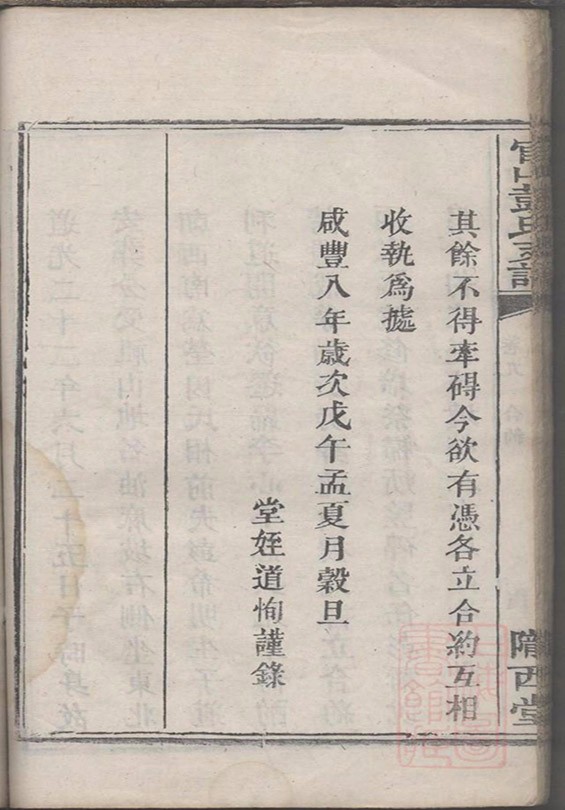 其餘不得牽碍今欲有憑各立合約互相
收執爲據
咸豐八年歲次戊午孟夏月穀旦
堂姪道恂謹錄
彭氏支譜
隴西堂